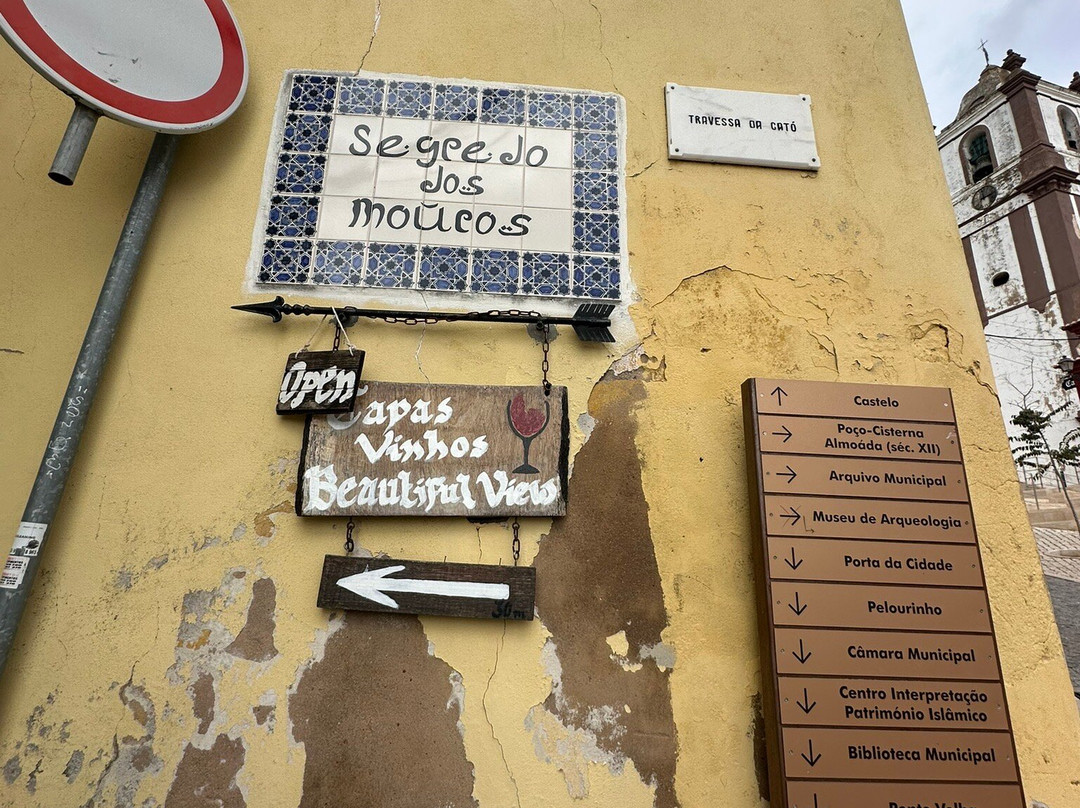 Segredo
dos
Moūros
TRAVESSA DA GATÓ
Open
Tapas
Vinhos
Beautiful View
30m
Castelo
Poço-Cisterna
Almoáda (séc. XII)
Arquivo Municipal
Museu de Arqueologia
Porta da Cidade
Pelourinho
Câmara Municipal
Centro Interpretação
Património Islâmico
Biblioteca Municipal
Ponte Velha